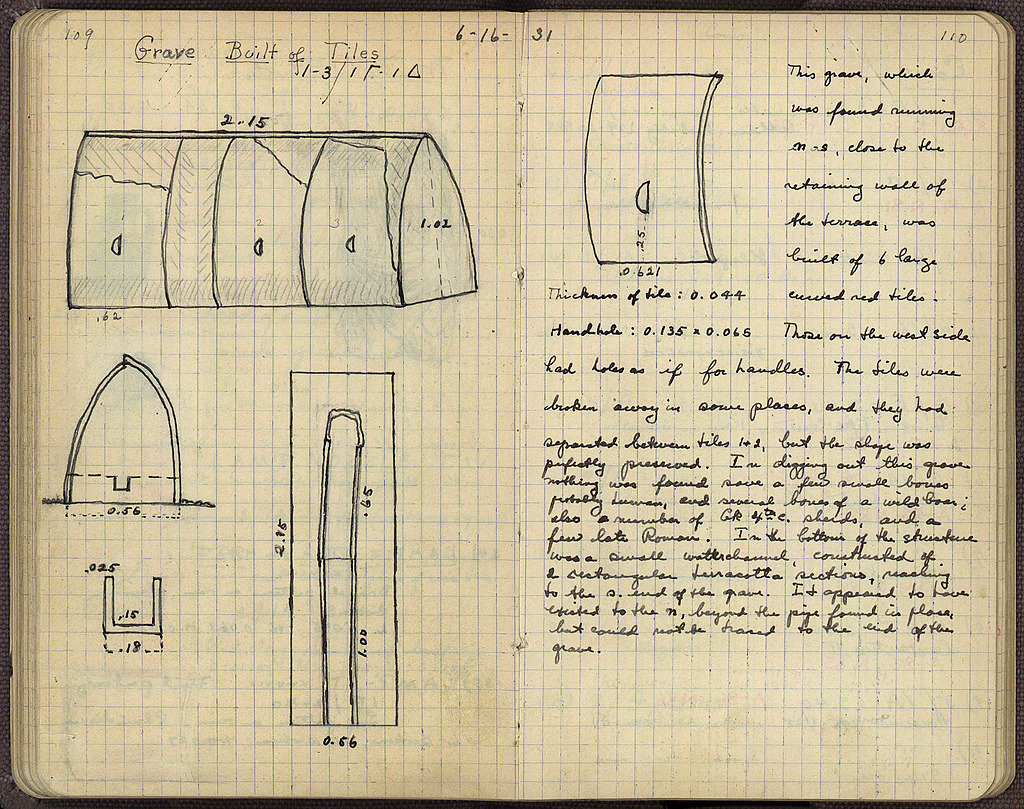 109
6-16-31
110
Grave Built of Tiles
1-3/1Γ-1Δ
2.15
1
2
3
1.02
.62
0.56
.025
.15
.18
2.15
.65
1.00
0.56
.25
0.621
This grave, which
was found running
n-s, close to the
retaining wall of
the terrace, was
built of 6 large
curved red tiles.
Thickness of tile: 0.044
Handhole: 0.135 x 0.065 Those on the west side
had holes as if for handles. The tiles were
broken away in some places, and they had
separated between tiles 1+2, but the shape was
perfectly preserved. In digging out this grave
nothing was found save a few small bones
probably human, and several bones of a wild boar;
also a number of Gk 4th c. sherds, and a
few late Roman. In the bottom of the structure
was a small water channel, constructed of
2 rectangular terracotta sections, reaching
to the s. end of the grave. It appeared to have
existed to the n, beyond the pipe found in place,
but could not be traced to the end of the
grave.